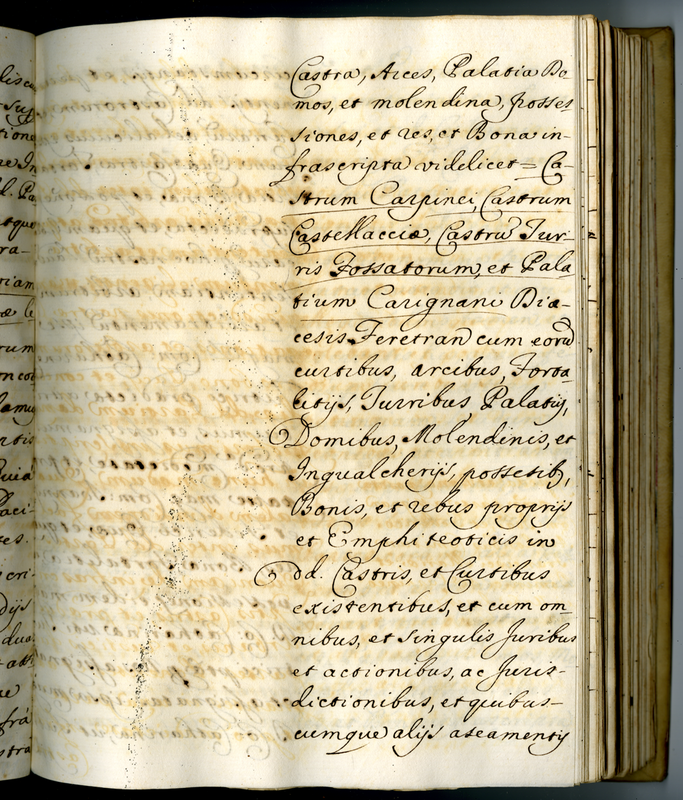 Castra, Arces, Palatia Do
mos, et molendina, posses
siones, et res, et Bona in-
frascripta videlicet = Ca-
strum Carpinei, Castrum
Castellacciæ, Castrũ Tur-
ris Fossatorum, et Pala
tium Carignani Diæ-
cesis Feretran cum eorũ
curtibus, arcibus, Forta
litijs, Turribus, Palatijs,
Domibus, Molendinis, et
Ingualcherijs, possetib,
Bonis, et rebus proprijs
et Emphiteoticis in
dd. Castris, et Curtibus
existentibus, et cum om-
nibus, et singulis Juribus
et actionibus, ac Juris-
dictionibus, et quibus-
cumque alijs aseamentijs